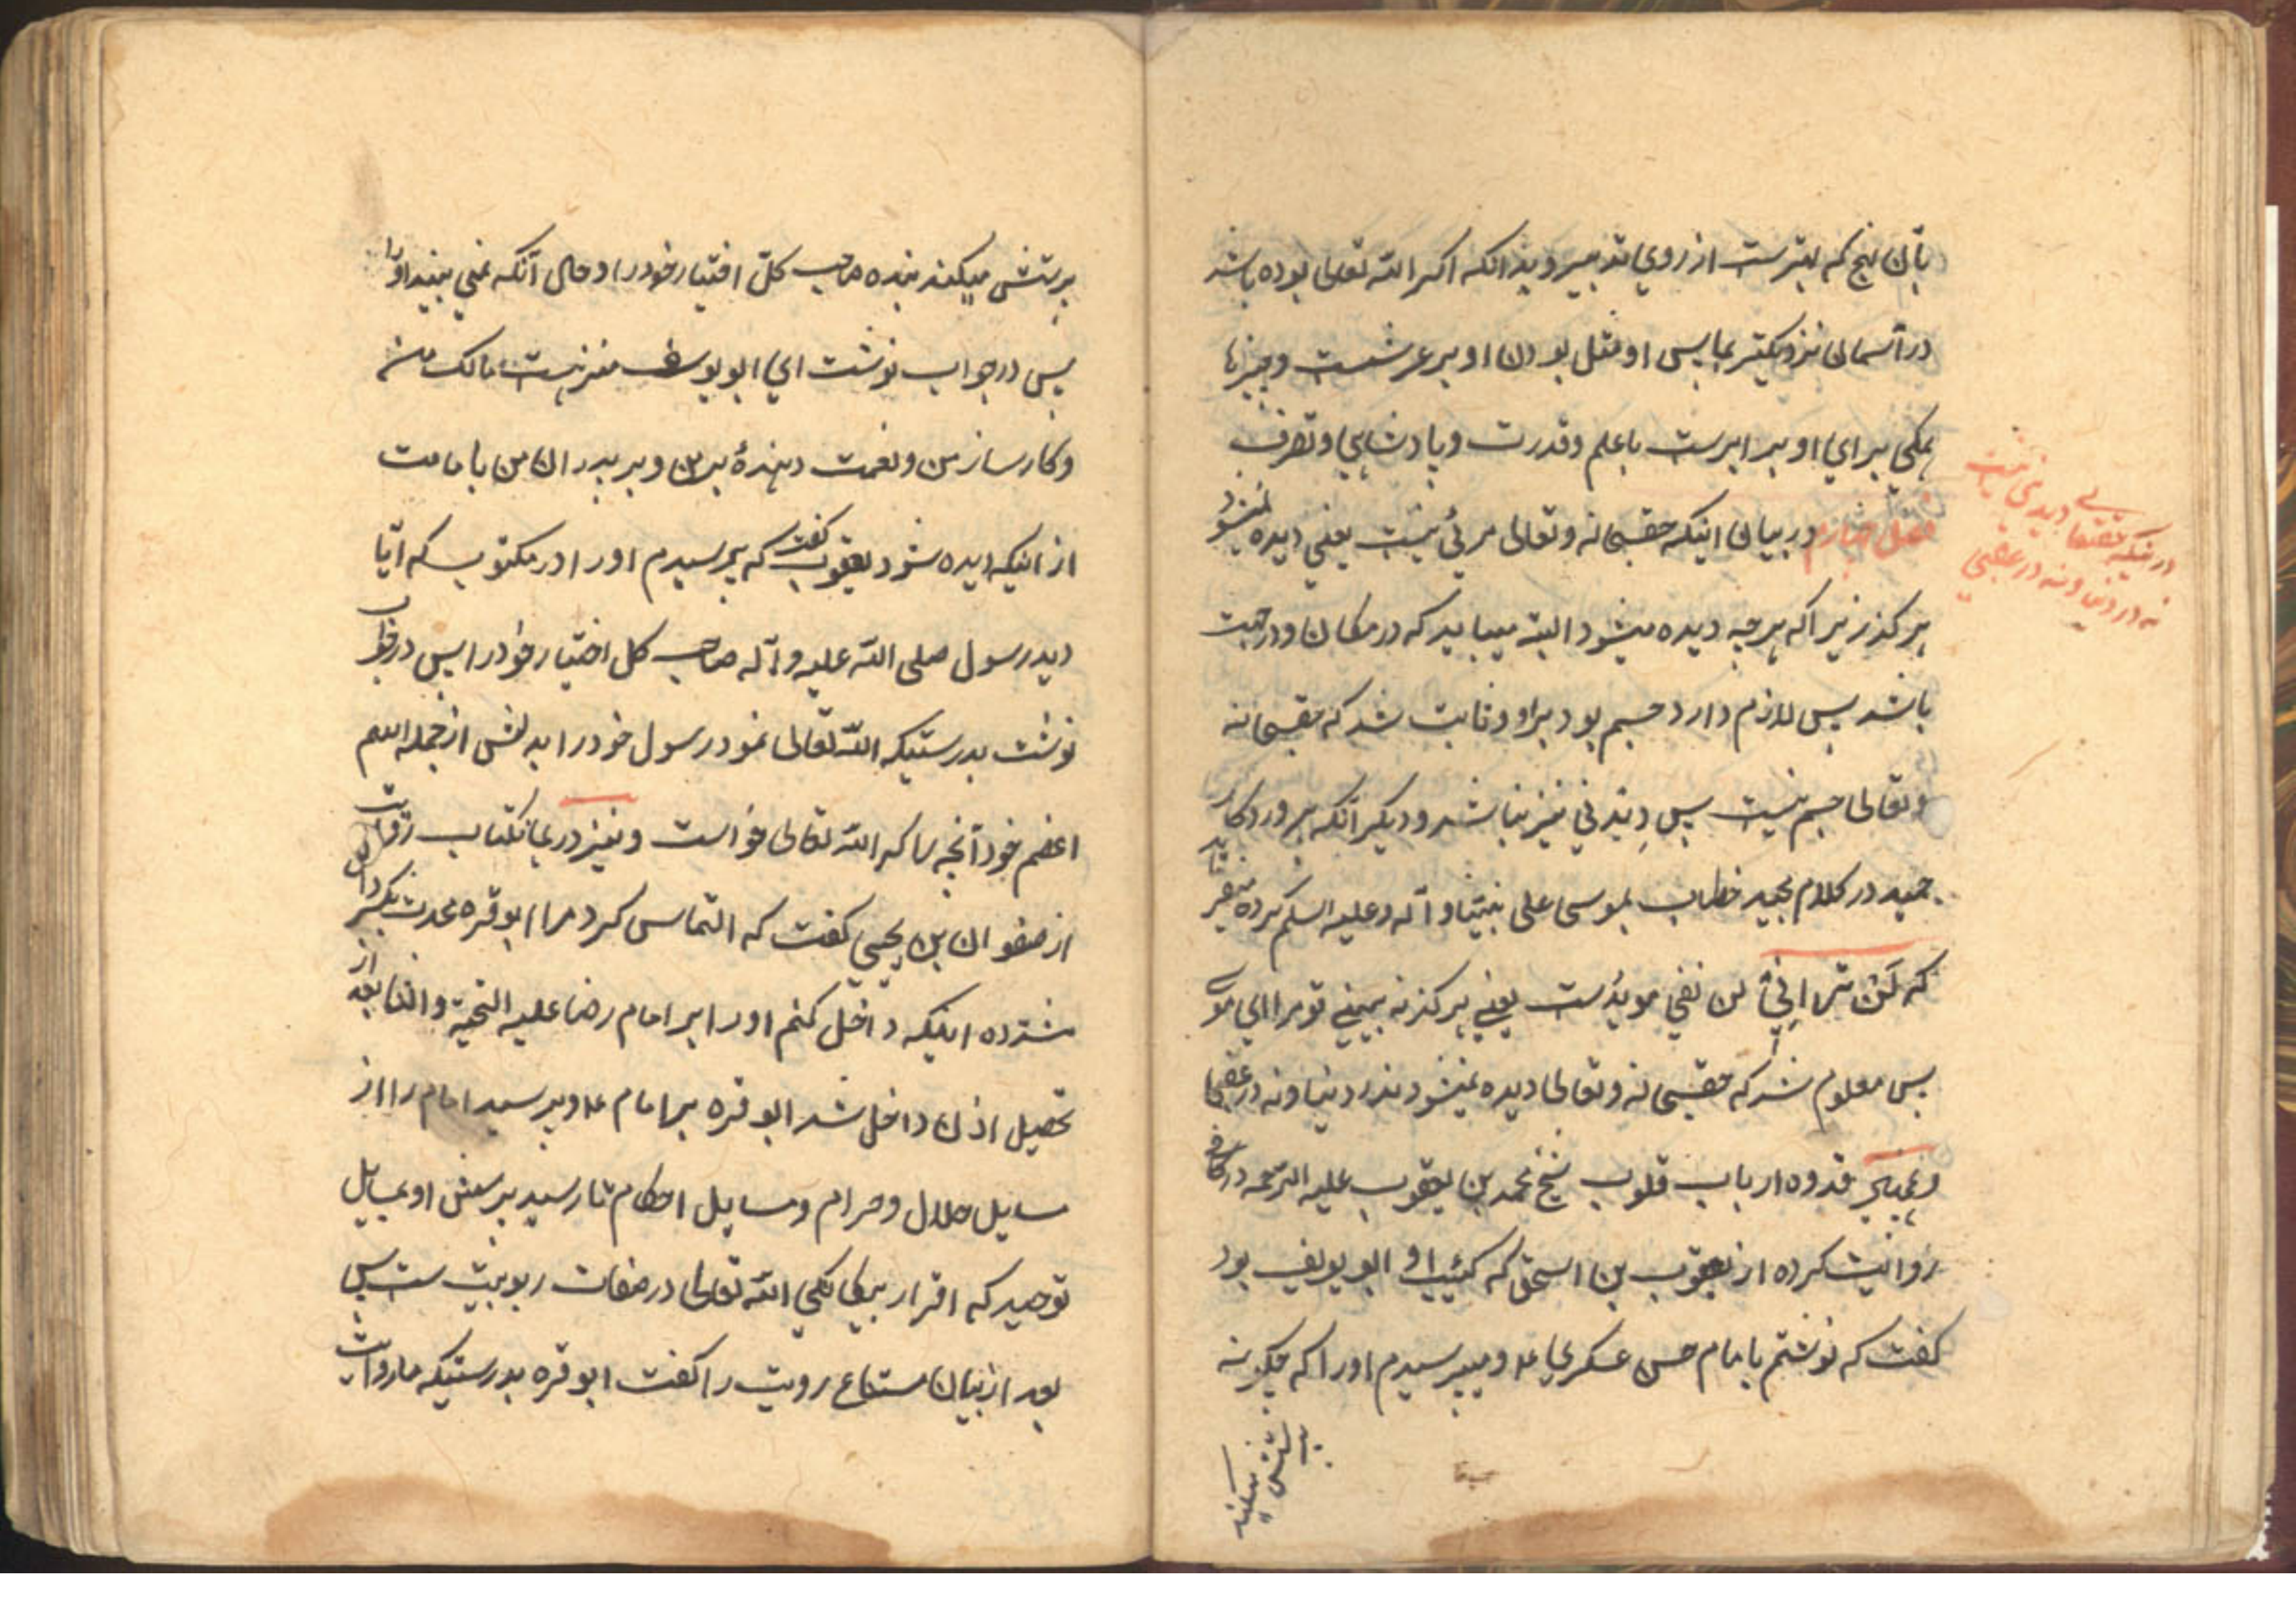 بآن نهج که بهترست از روی تدبیر و بدانکه اکر الله تعالی بوده باشد
در آسمان نزدیکتر بما پس او مثل بودن او بر عرشست و چیزها
همکی برای او برابرست با علم و قدرت و پادشاهی و تصرف
فصل چهارم در بیان اینکه حقسبحانه و تعالی مرئی نیست یعنی دیده نمیشود
در اینکه حقتعالی دیدنی نیست
نه در دنیا و نه در عقبی
هرکز زیرا که هرچه دیده میشود البته میباید که در مکان و در جهت
باشد پس لازم دارد جسم بودن او و ثابت شد که حقسبحانه
و تعالی جسم نیست پس دیدنی نیز نباشد و دیکر آنکه پروردکار
حمید در کلام مجید خطاب بموسی علی نبینا و آله و علیه السلم کرده میفرماید
که لَنْ تَرانِي لن نفی موبدست یعنی هرکز نه بینی تو مرا ای موسی
پس معلوم شد که حقسبحانه و تعالی دیده نمیشود نه در دنیا و نه در عقبی
قدوه ارباب قلوب شیخ محمد بن یعقوب علیه الرحمه در کافی
روایت کرده از یعقوب بن اسحق که کنیت او ابو یوسف بود
کفت که نوشتم بامام حسن عسکری ع و میپرسیدم او را که چکونه
پرستش میکند
پرستش میکند بنده صاحب کل اختیار خود را و حال آنکه نمی بیند او را
پس در جواب نوشت ای ابو یوسف منزهست مالک من
و کارساز من و نعمت دهندهٔ بر من و بر پدران من
از اینکه دیده شود یعقوب کفت که پرسیدم او را در مکتوب که آیا
دید رسول صلی الله علیه و آله صاحب کل اختیار خود را پس در جواب
نوشت بدرستیکه الله تعالی نمود رسول خود را بدلش از جمله اسم
اعظم خود آنچه را که الله تعالی خواست و نیز در همانکتاب روایت
از صفوان بن یحیی کفت که التماس کرد مرا ابو قره محدث
اینکه داخل کنم او را بر امام رضا علیه التحیة و الثنا بعد از
تحصیل اذن داخل شد ابو قره بر امام ع و پرسید امام را از
مسایل حلال و حرام و مسایل احکام تا رسید پرسش او بمسایل
توحید که اقرار بیکانکی الله تعالی در صفات ربوبیت ست پس
بعد از بیان امتناع رویت را کفت ابو قره بدرستیکه ما روایت